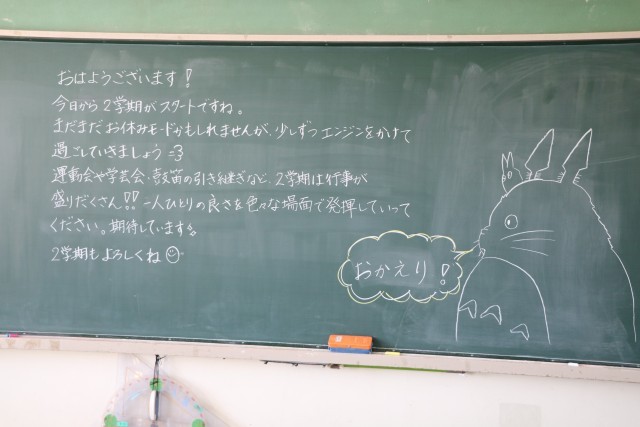 おはようございます!
今日から2学期がスタートですね。
まだまだお休みモードかもしれませんが、少しずつエンジンをかけて
過ごしていきましょう=3
運動会や学芸会・鼓笛の引き継ぎなど、2学期は行事が
盛りだくさん!! 一人ひとりの良さを色々な場面で発揮していって
ください。期待しています。
2学期もよろしくね
おかえり!